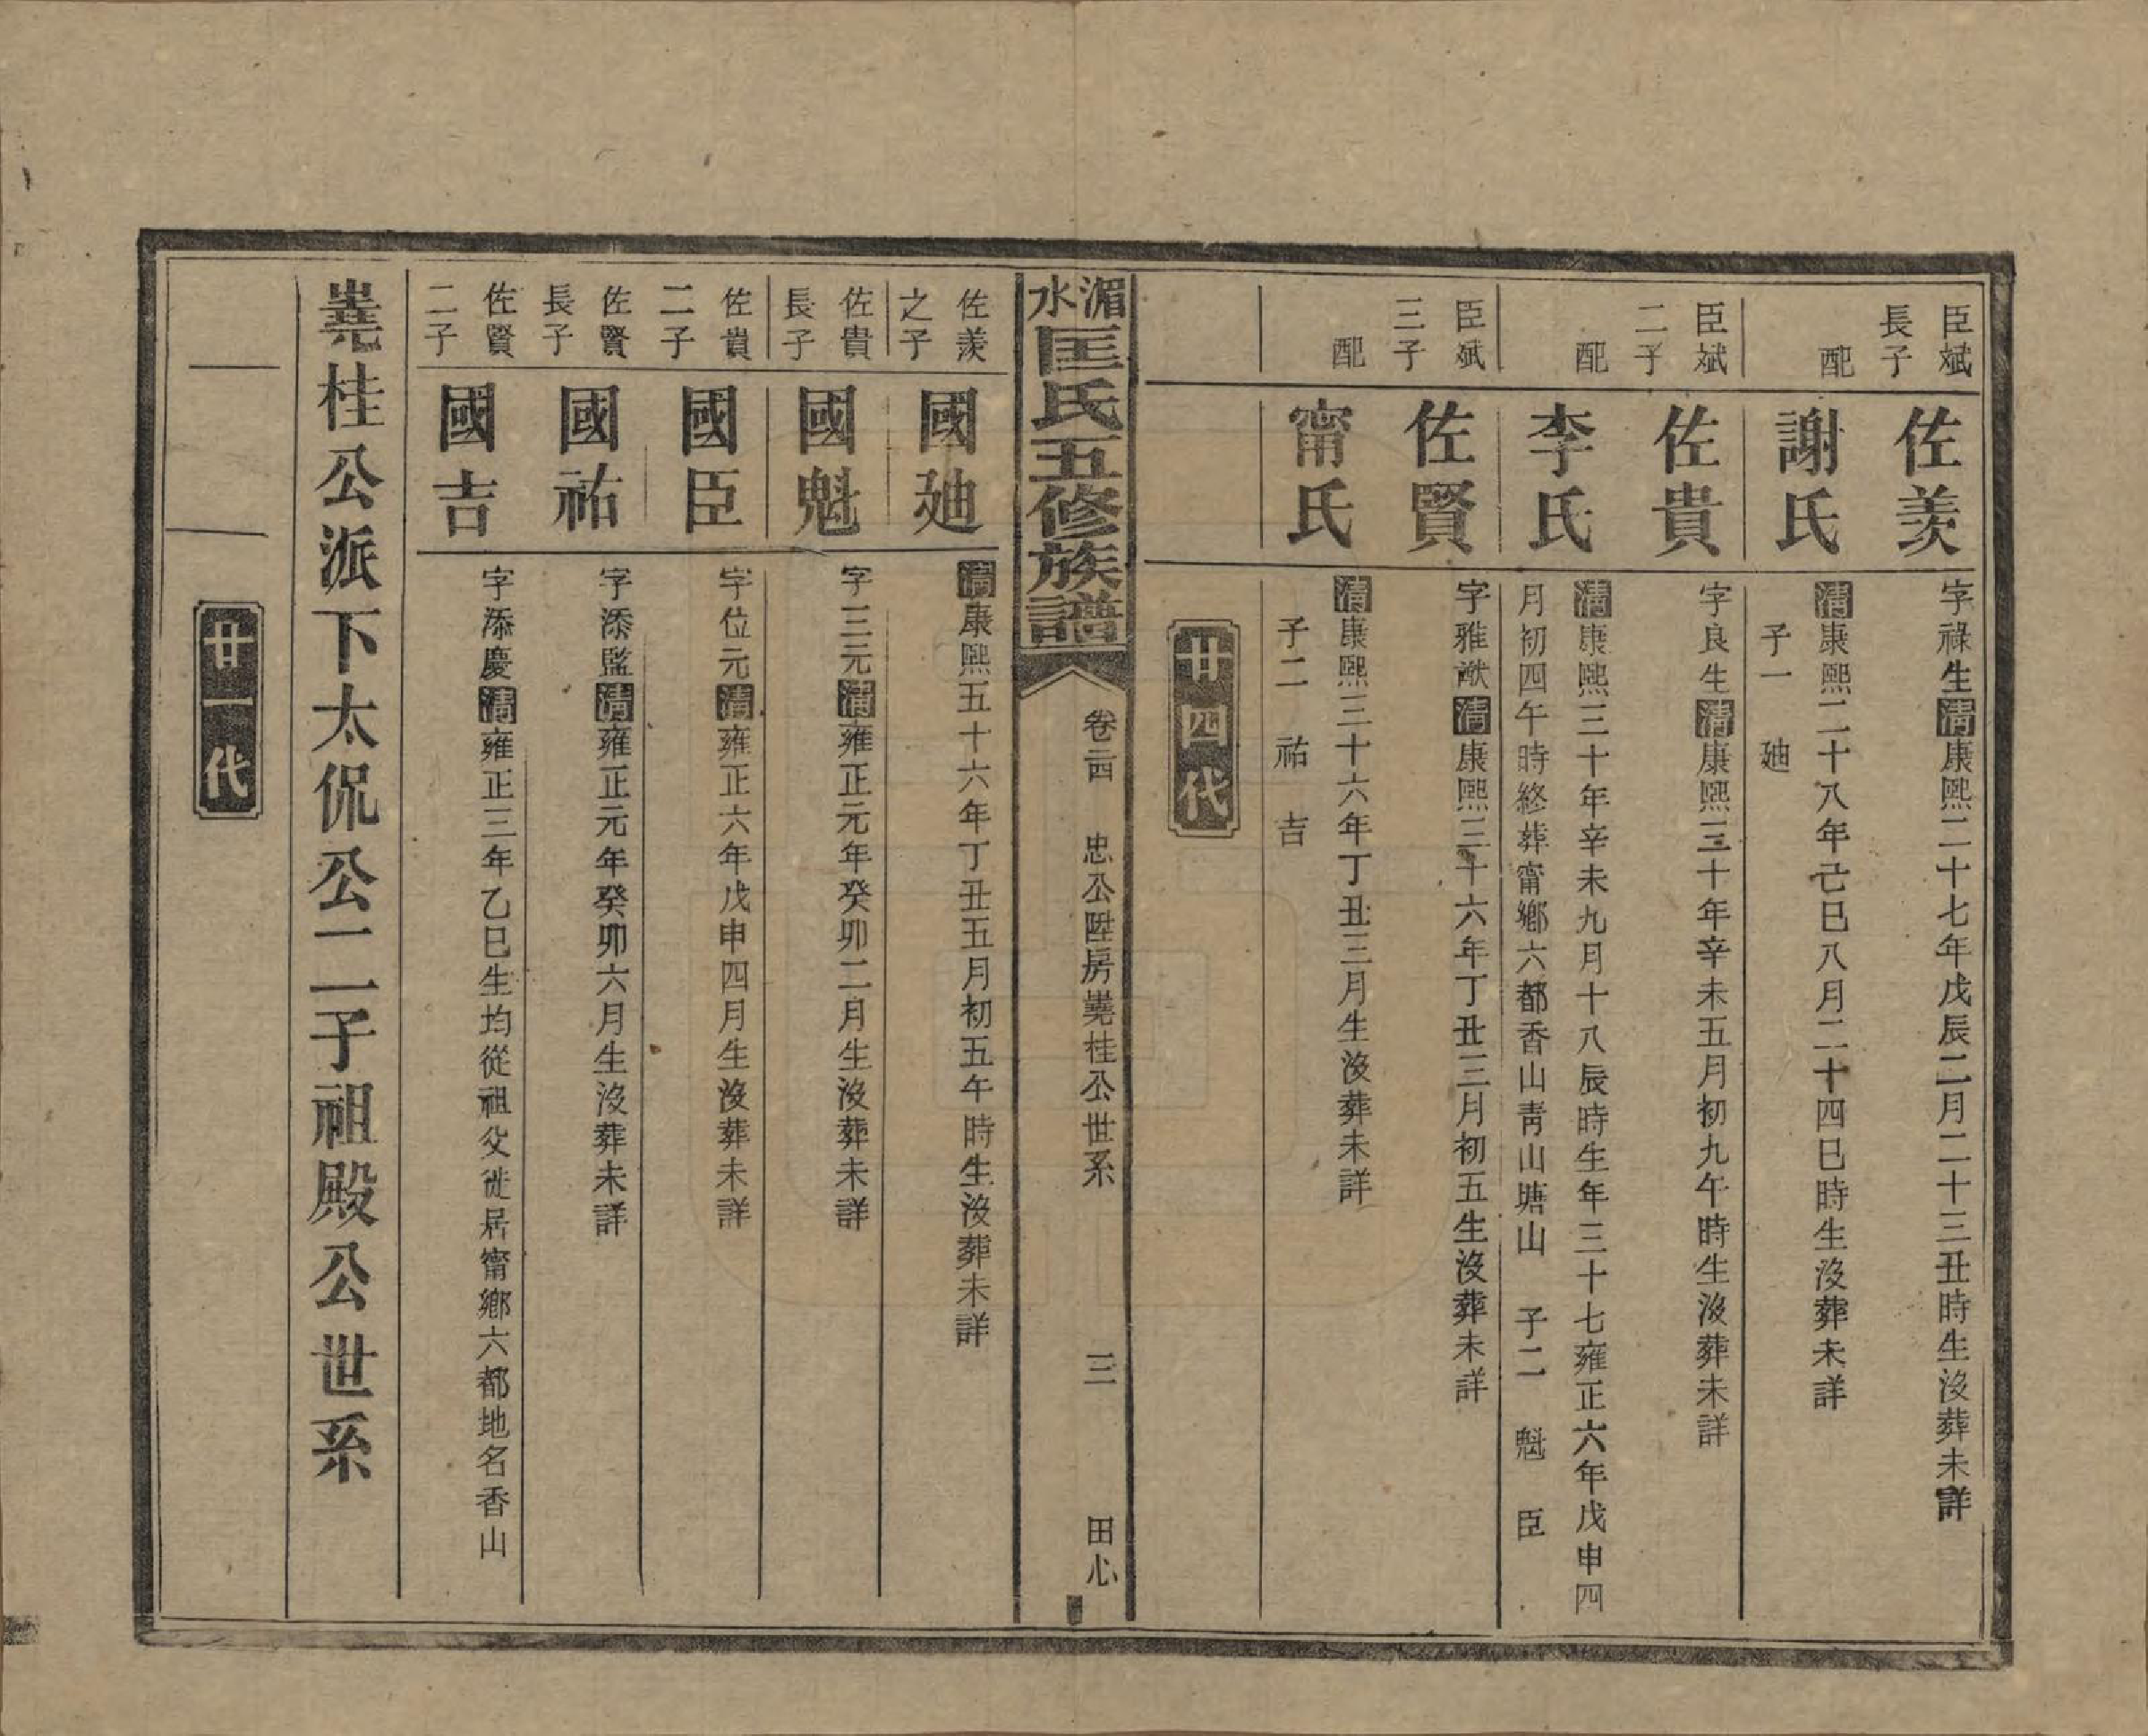 臣斌長子
佐羨
字祿生清康熙二十七年戊辰二月二十三丑時生沒葬未詳
配
謝氏
清康熙二十八年己巳八月二十四巳時生沒葬未詳
子一　廸
臣斌二子
佐貴
字良生清康熙三十年辛未五月初九午時生沒葬未詳
配
李氏
清康熙三十年辛未九月十八辰時生年三十七雍正六年戊申四
月初四午時終葬甯鄉六都香山青山塘山　子二　魁　臣
臣斌三子
佐賢
字雅猷清康熙三十六年丁丑三月初五生沒葬未詳
配
甯氏
清康熙三十六年丁丑三月生沒葬未詳
子二　祐　吉
廿四代
湄水匡氏五修族譜
卷二四　忠公陞房嶤桂公世系　三　田心
佐羨之子
國廸
清康熙五十六年丁丑五月初五午時生沒葬未詳
佐貴長子
國魁
字三元清雍正元年癸卯二月生沒葬未詳
佐貴二子
國臣
字位元清雍正六年戊申四月生沒葬未詳
佐賢長子
國祐
字添監清雍正元年癸卯六月生沒葬未詳
佐賢二子
國吉
字添慶清雍正三年乙巳生均從祖父徙居甯鄉六都地名香山
嶤桂公派下太侃公二子祖殿公世系
廿一代